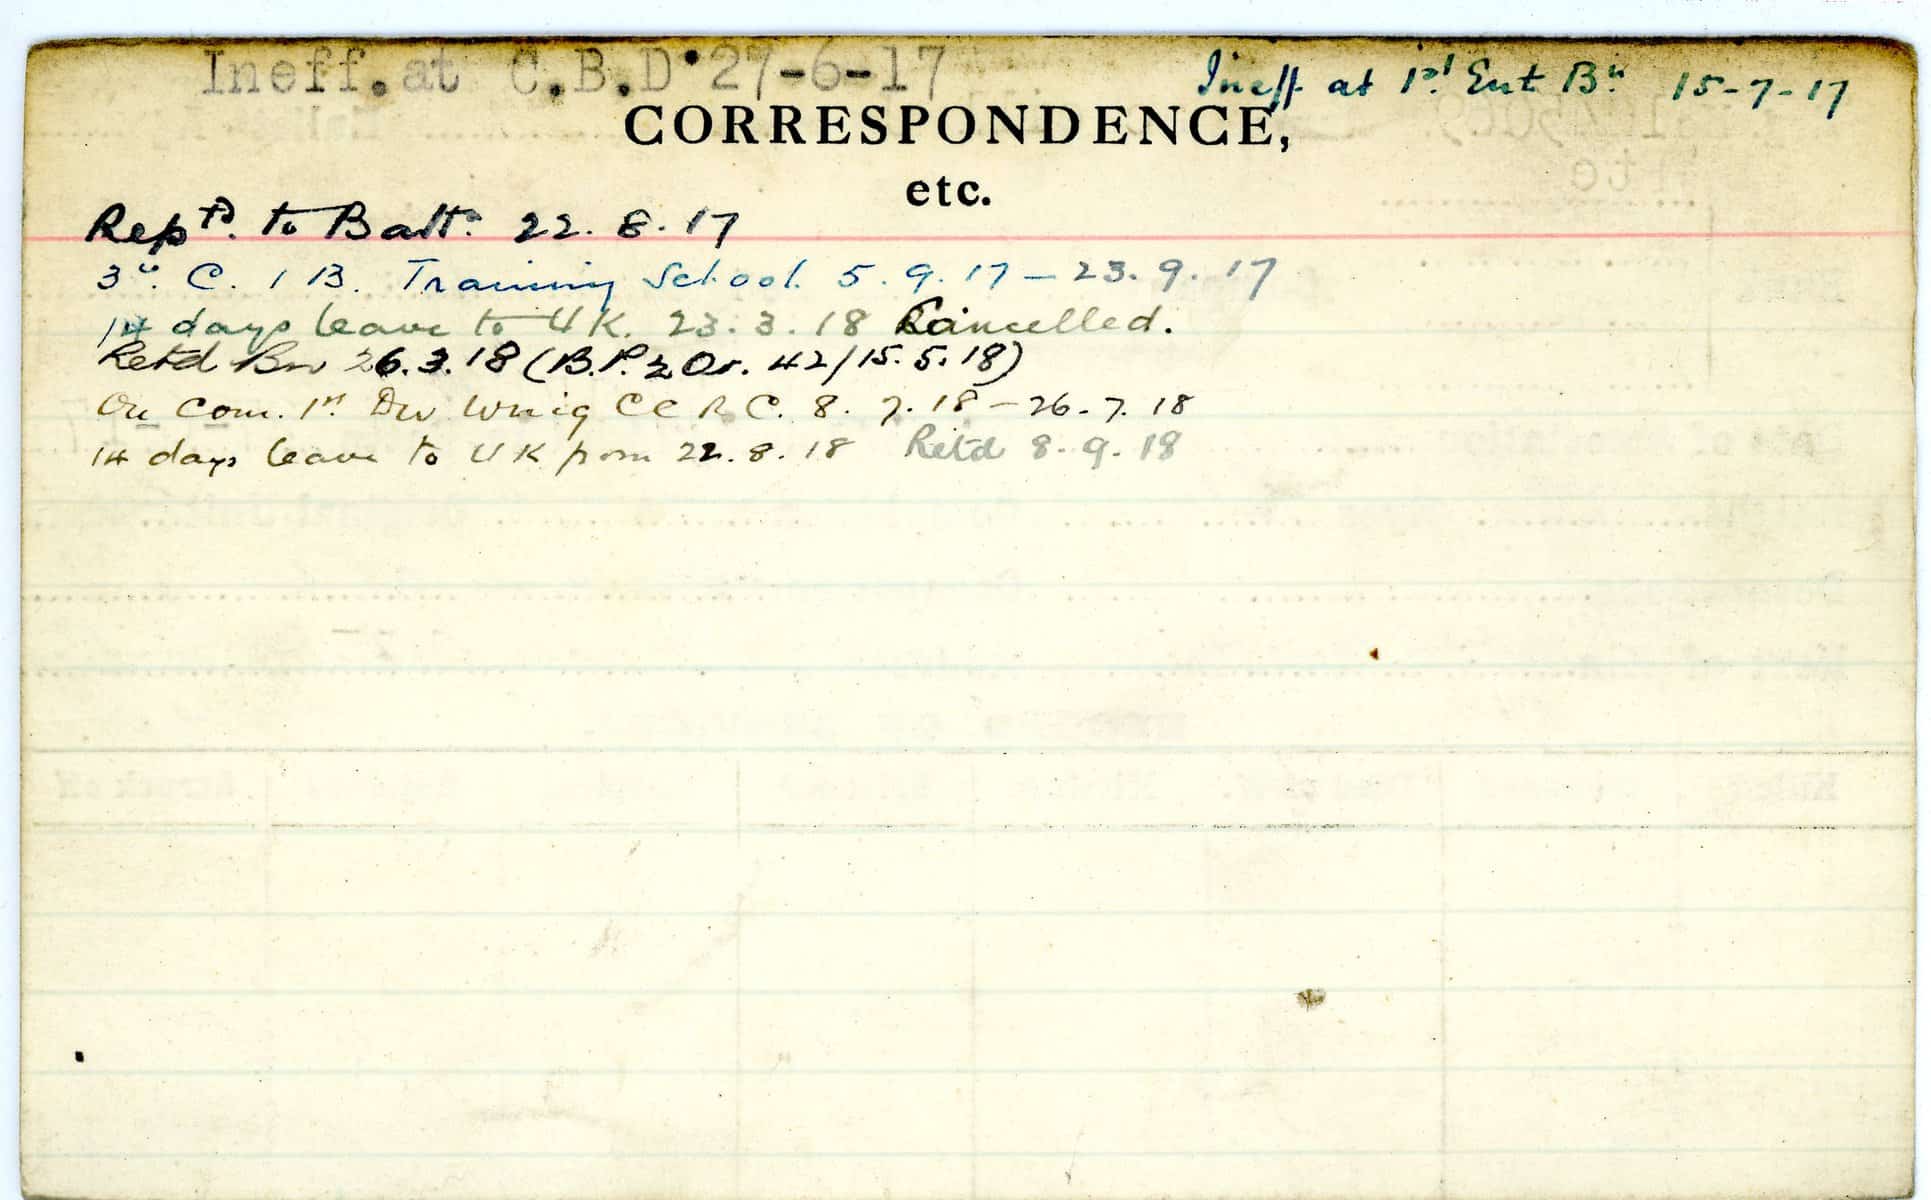 Ineff. at C.B.D. 27-6-17
Ineff at 1st Ent Bn 15-7-17
CORRESPONDENCE,
etc.
Reptd. to Batt. 22. 8. 17
C. I B. Training School. 5. 9. 17 – 23. 9. 17
14 days leave to UK. 23. 3. 18 Cancelled.
Retd Bn 26.3.18 (B.P. 2 Or. 42/15.5.18)
On Com. 1st Div Wing C C R C. 8. 7. 18 – 26. 7. 18
14 days leave to UK from 22. 8. 18 Retd 8. 9. 18